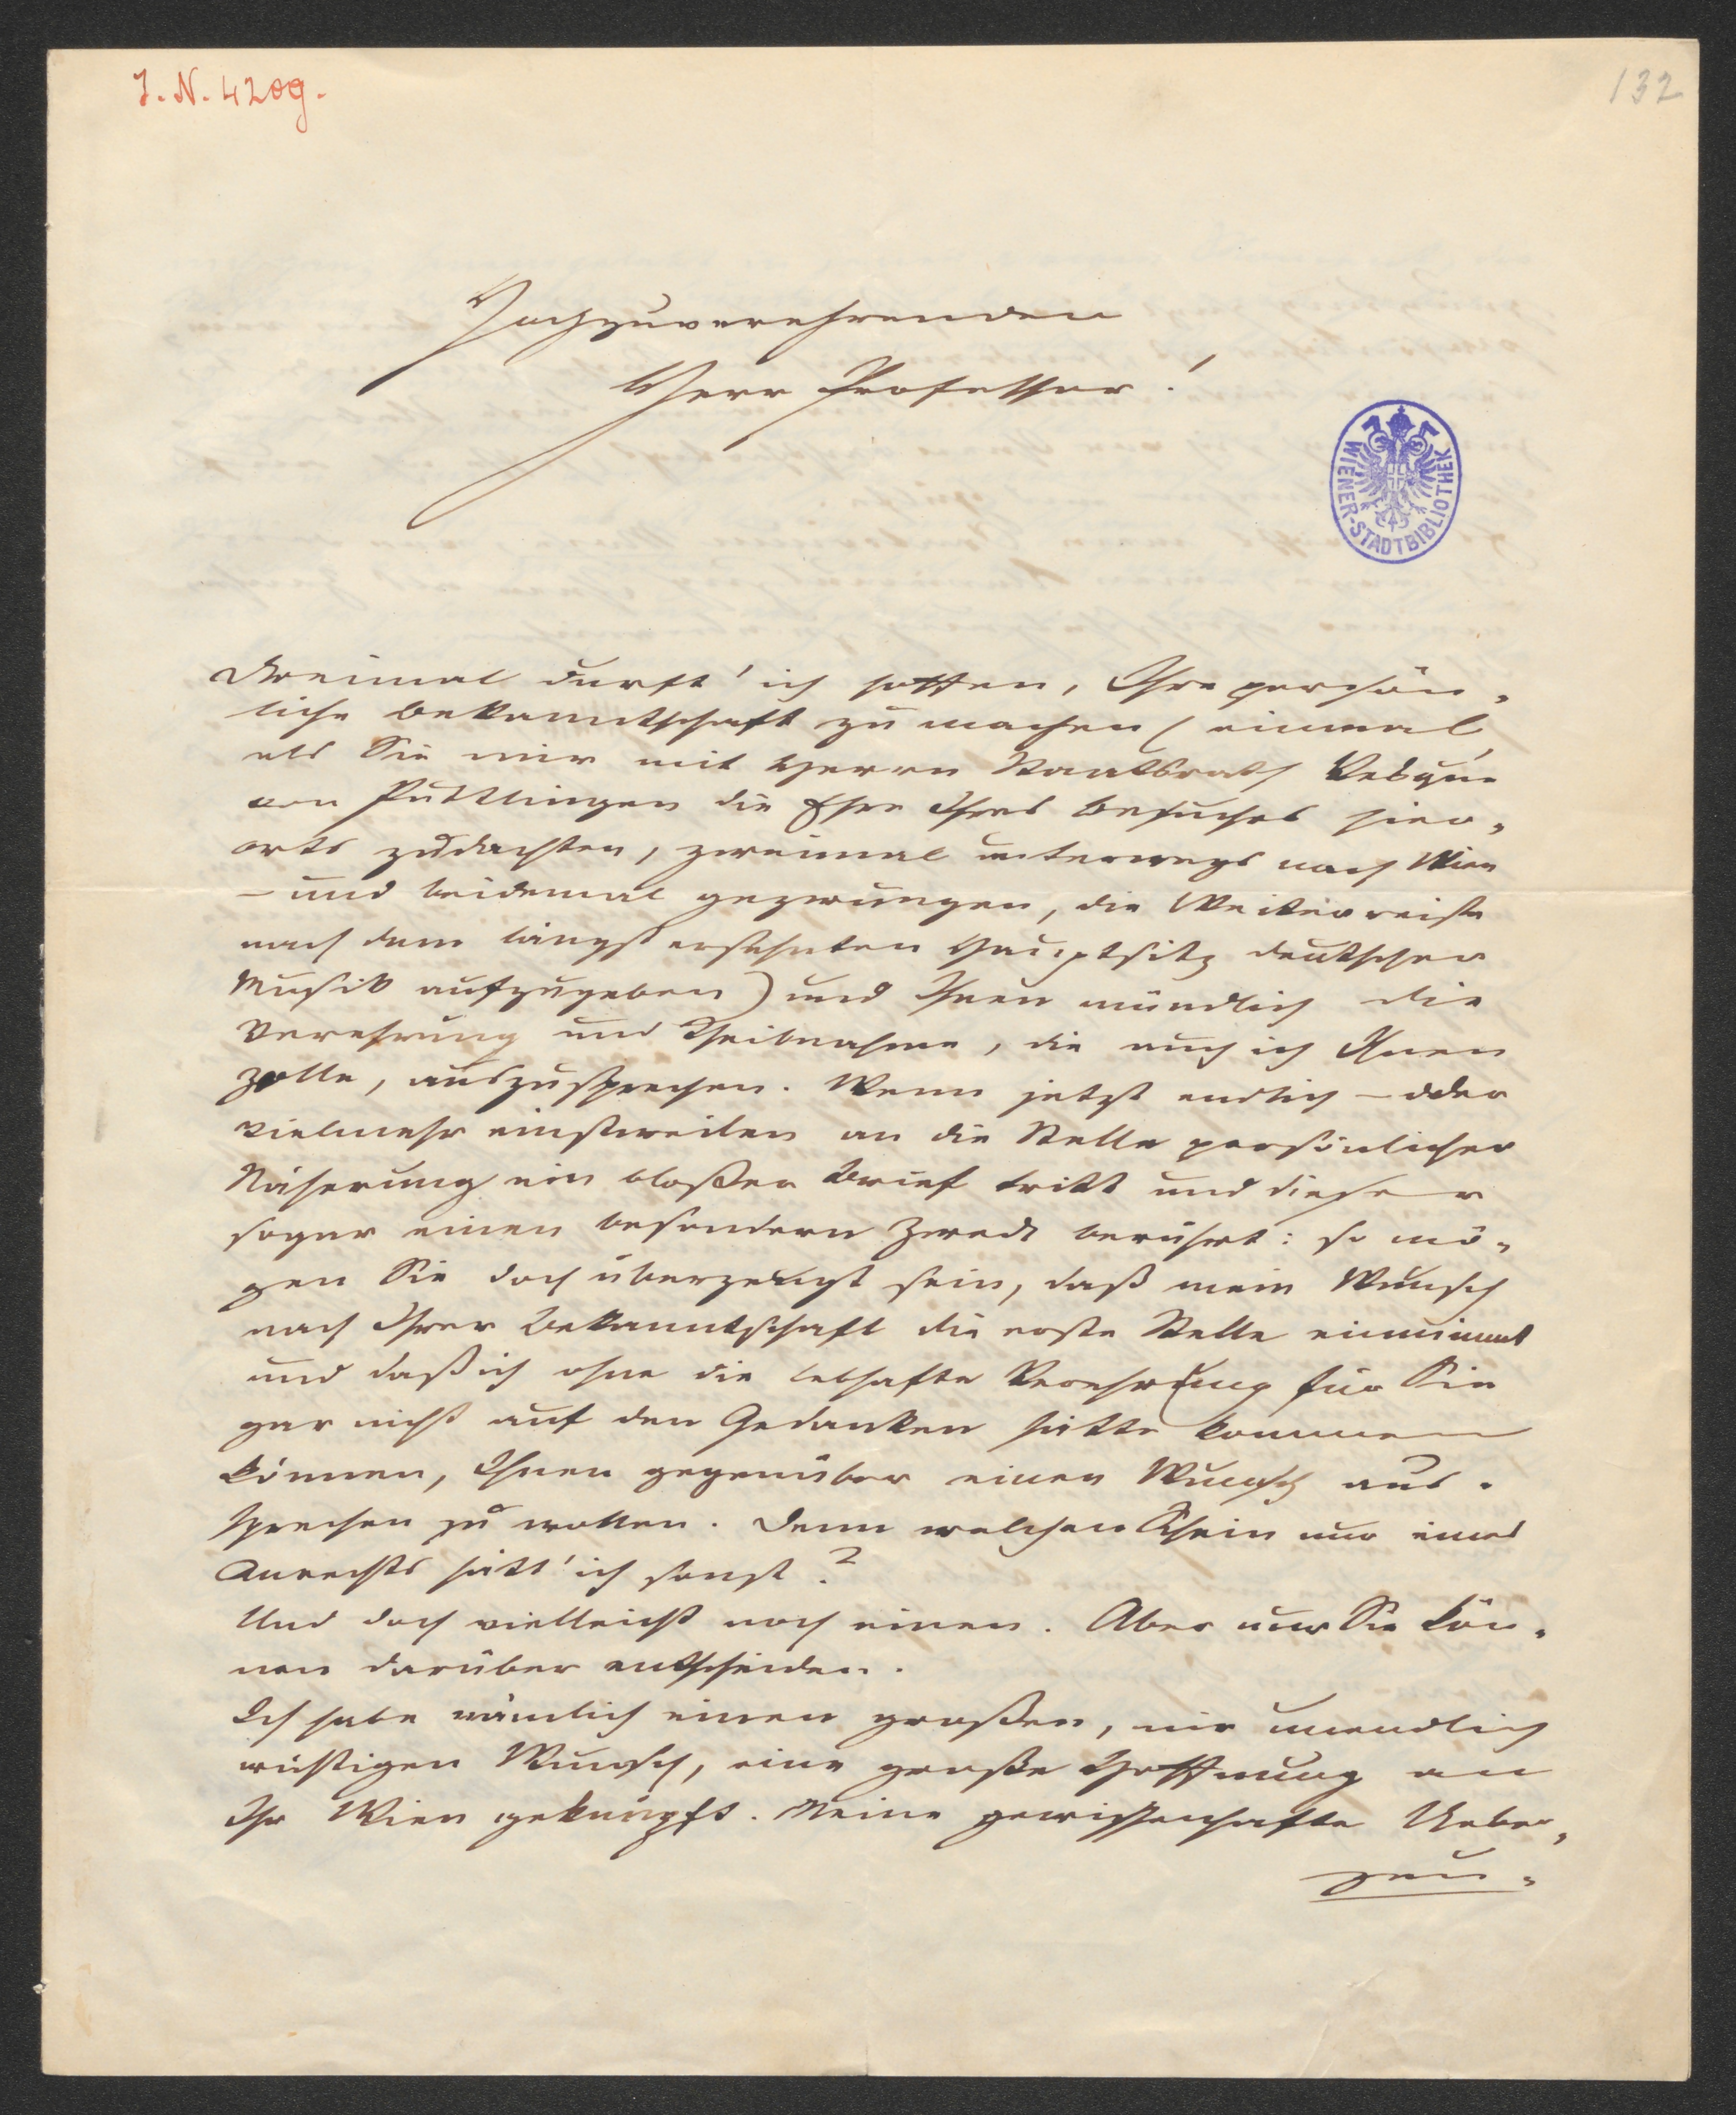 J. N. 4209.
132
Hochzuverehrenden
Herr Professor!
WIENER-STADTBIBLIOTHEK
Dreimal durft' ich hoffen, Ihre persön-
liche Bekanntschaft zu machen (einmal,
als Sie mir mit Herrn Staatsrath Vesque
von Püttlingen die Ehre Ihres Besuches hier-
orts zudachten, zweimal unterwegs nach Wien
– und beidemal gezwungen, die Weiterreise
nach dem längst ersehnten Hauptsitz deutscher
Musik aufzugeben) und Ihnen mündlich die
Verehrung und Theilnahme, die auch ich Ihnen
zolle, auszusprechen. Wenn jetzt endlich – oder
vielmehr einstweilen an die Stelle persönlicher
Näherung ein bloßer Brief tritt und dieser
sogar einen besondern Zweck berührt: so mö-
gen Sie doch überzeugt sein, daß mein Wunsch
nach Ihrer Bekanntschaft die erste Stelle einnimmt
und daß ich ohne die lebhafte Verehrung für Sie
gar nicht auf den Gedanken hätte kommen
können, Ihnen gegenüber einen Wunsch aus-
sprechen zu wollen. Denn welchen Schein nur eines
Anrechts hätt' ich sonst?
Und doch vielleicht noch einen. Aber nur Sie kön-
nen darüber entscheiden.
Ich habe nämlich einen großen, mir unendlich
wichtigen Wunsch, eine große Hoffnung an
Ihr Wien geknüpft. Meine gewissenhafte Ueber-
zeu-